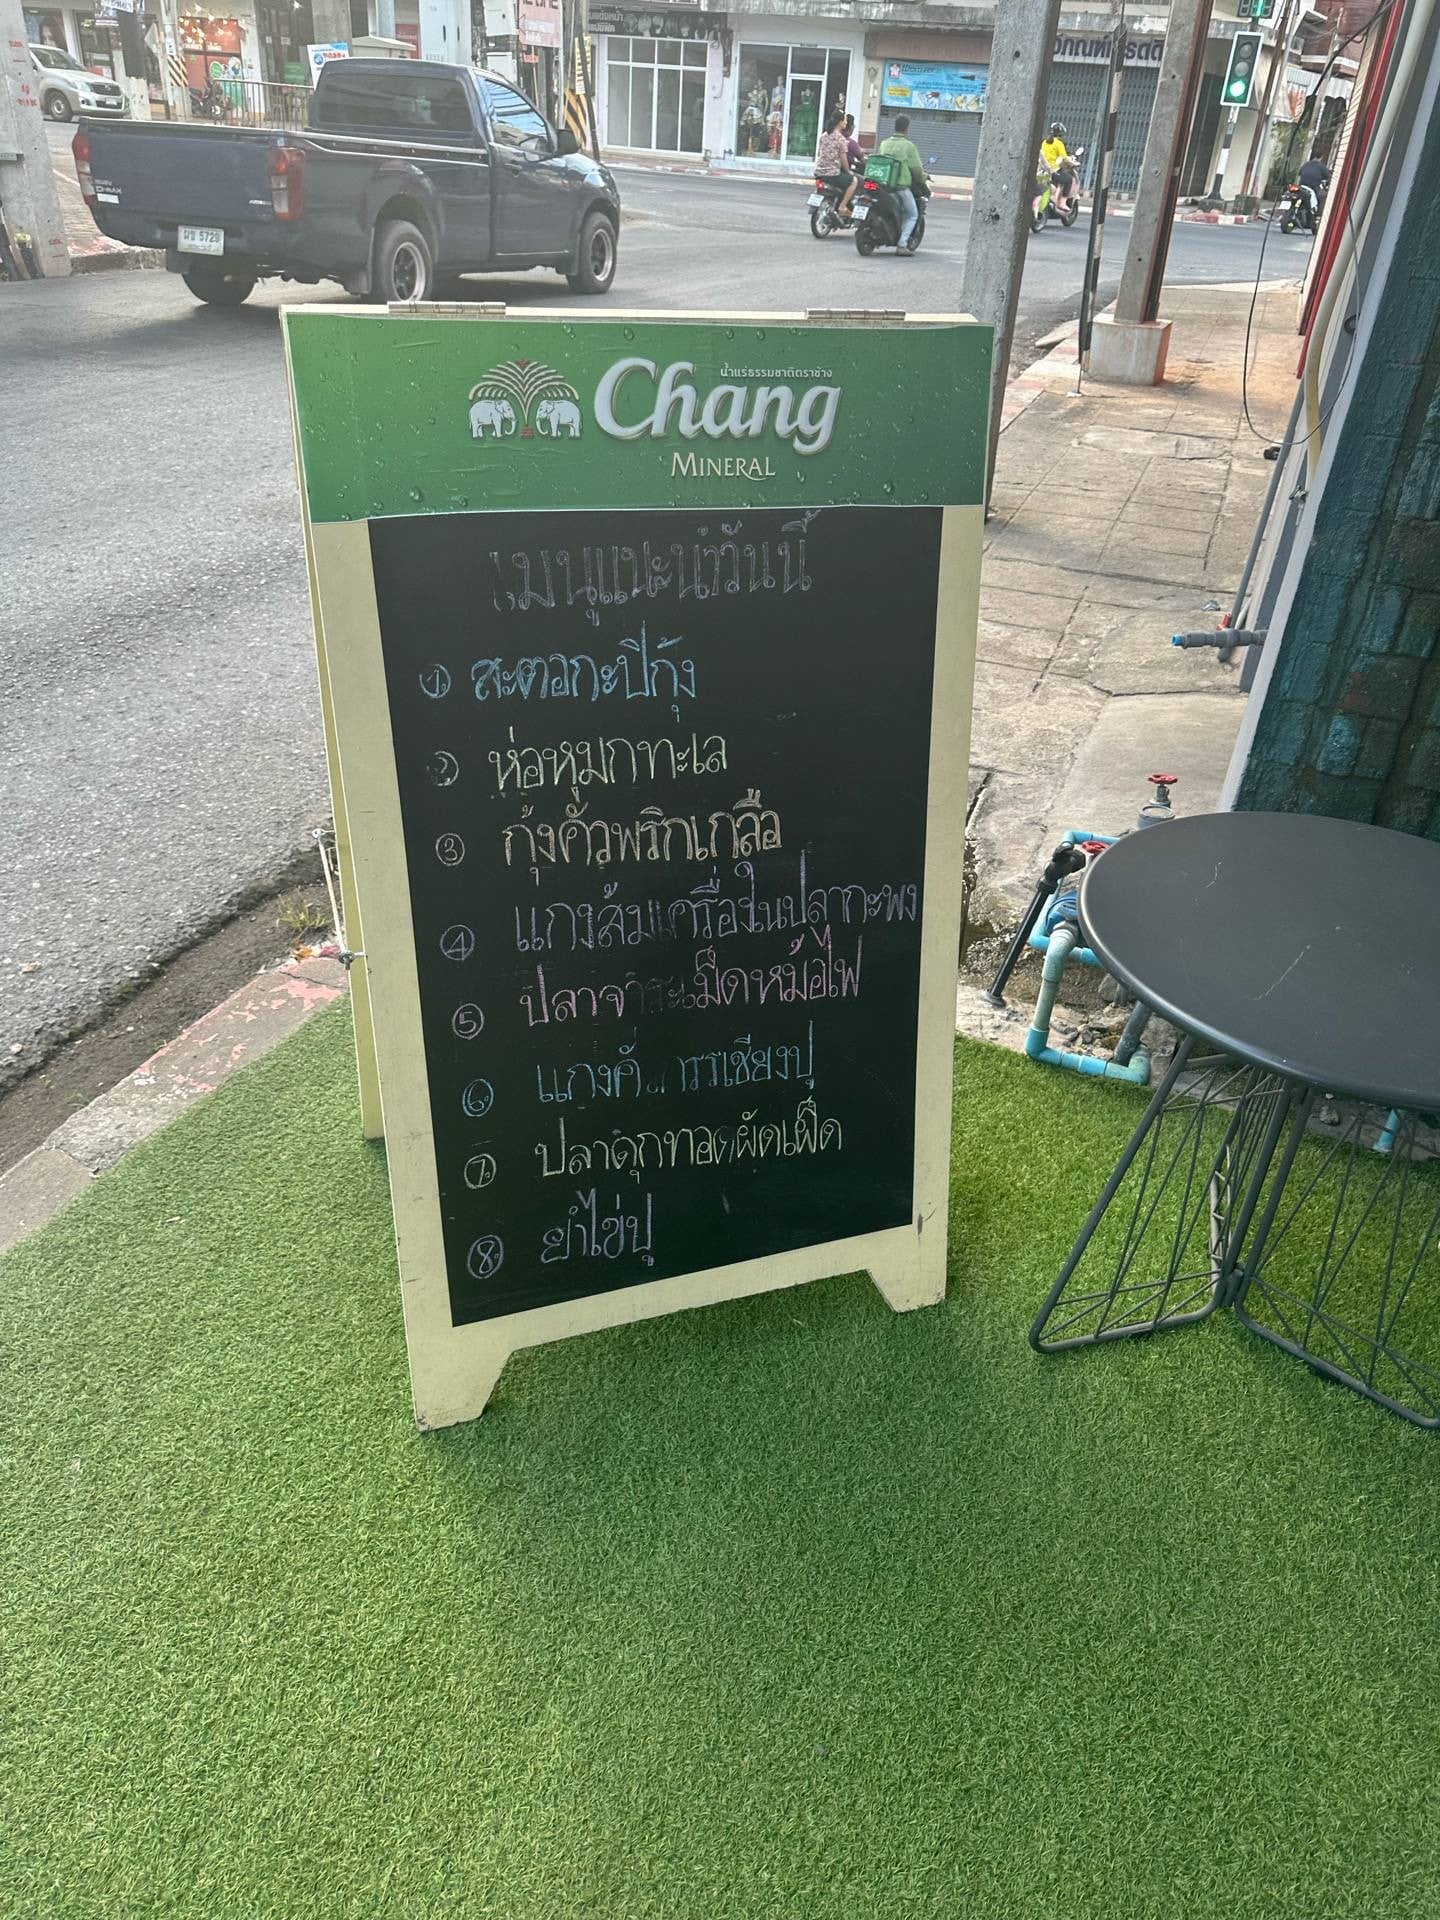 น้ำแร่ธรรมชาติตราช้าง
Chang
MINERAL
เมนูแนะนำวันนี้
1 สะตอกะปิกุ้ง
2 ห่อหมกทะเล
3 กุ้งคั่วพริกเกลือ
4 แกงส้มเครื่องในปลากะพง
5 ปลาจาระเม็ดหม้อไฟ
6 แกงคั่ว
7 ปลาดุกทอดผัดเผ็ด
8 ยำไข่ปู
Grab
ผข 5720